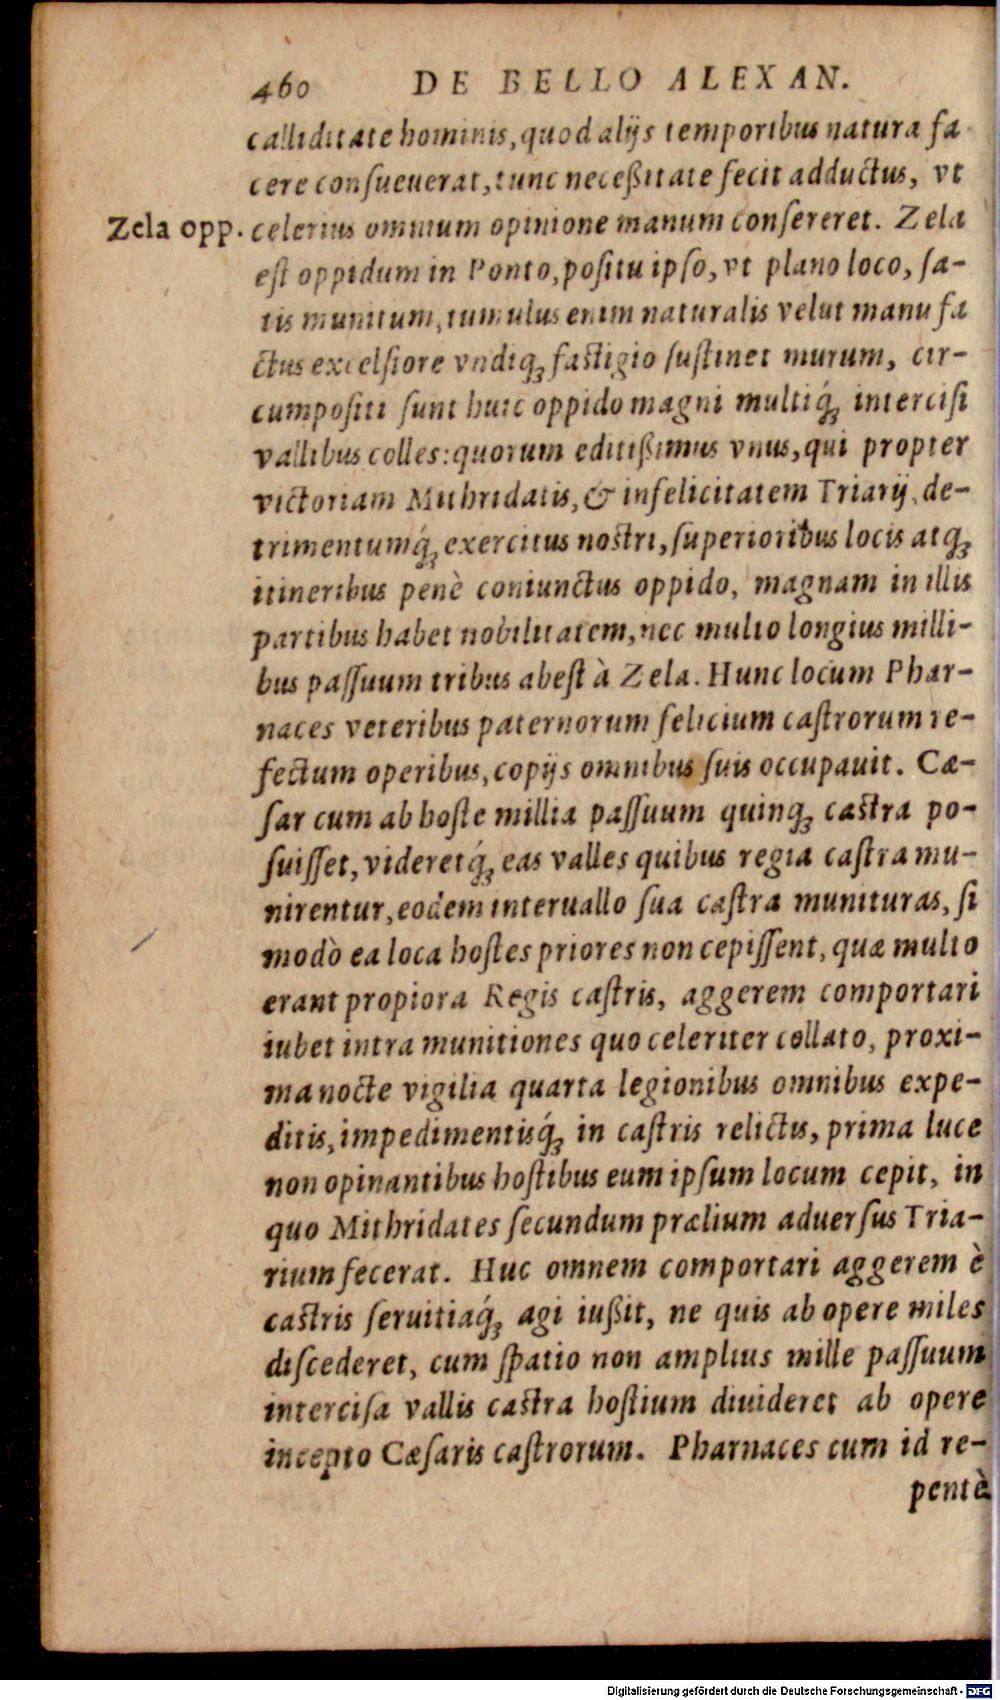 460 DE BELLO ALEXAN.
calliditate hominis, quod alijs temporibus natura fa
cere conſueuerat, tunc neceßitate fecit adductus, vt
Zela opp. celerius omnium opinione manum conſereret. Zela
eſt oppidum in Ponto, poſitu ipſo, vt plano loco, ſa-
tis munitum, tumulus enim naturalis velut manu fa
ctus excelſiore vndiq́ꝫ faſtigio ſuſtinet murum, cir-
cumpoſiti ſunt huic oppido magni multiq́ꝫ interciſi
vallibus colles: quorum editißimus vnus, qui propter
victoriam Mithridatis, & infelicitatem Triarij, de-
trimentumq́ꝫ exercitus noſtri, ſuperioribus locis atqꝫ
itineribus penè coniunctus oppido, magnam in illis
partibus habet nobilitatem, nec multo longius milli-
bus paſſuum tribus abeſt à Zela. Hunc locum Phar-
naces veteribus paternorum felicium caſtrorum re-
fectum operibus, copijs omnibus ſuis occupauit. Cæ-
ſar cum ab hoſte millia paſſuum quinqꝫ caſtra po-
ſuiſſet, videretq́ꝫ eas valles quibus regia caſtra mu-
nirentur, eodem interuallo ſua caſtra munituras, ſi
modò ea loca hoſtes priores non cepiſſent, quæ multo
erant propiora Regis caſtris, aggerem comportari
iubet intra munitiones quo celeriter collato, proxi-
ma nocte vigilia quarta legionibus omnibus expe-
ditis, impedimentisq́ꝫ in caſtris relictis, prima luce
non opinantibus hoſtibus eum ipſum locum cepit, in
quo Mithridates ſecundum prælium aduerſus Tria-
rium fecerat. Huc omnem comportari aggerem è
caſtris ſeruitiaq́ꝫ agi iußit, ne quis ab opere miles
diſcederet, cum ſpatio non amplius mille paſſuum
interciſa vallis caſtra hoſtium diuideret ab opere
incepto Cæſaris caſtrorum. Pharnaces cum id re-
pentè
Digitalisierung gefördert durch die Deutsche Forschungsgemeinschaft - DFG